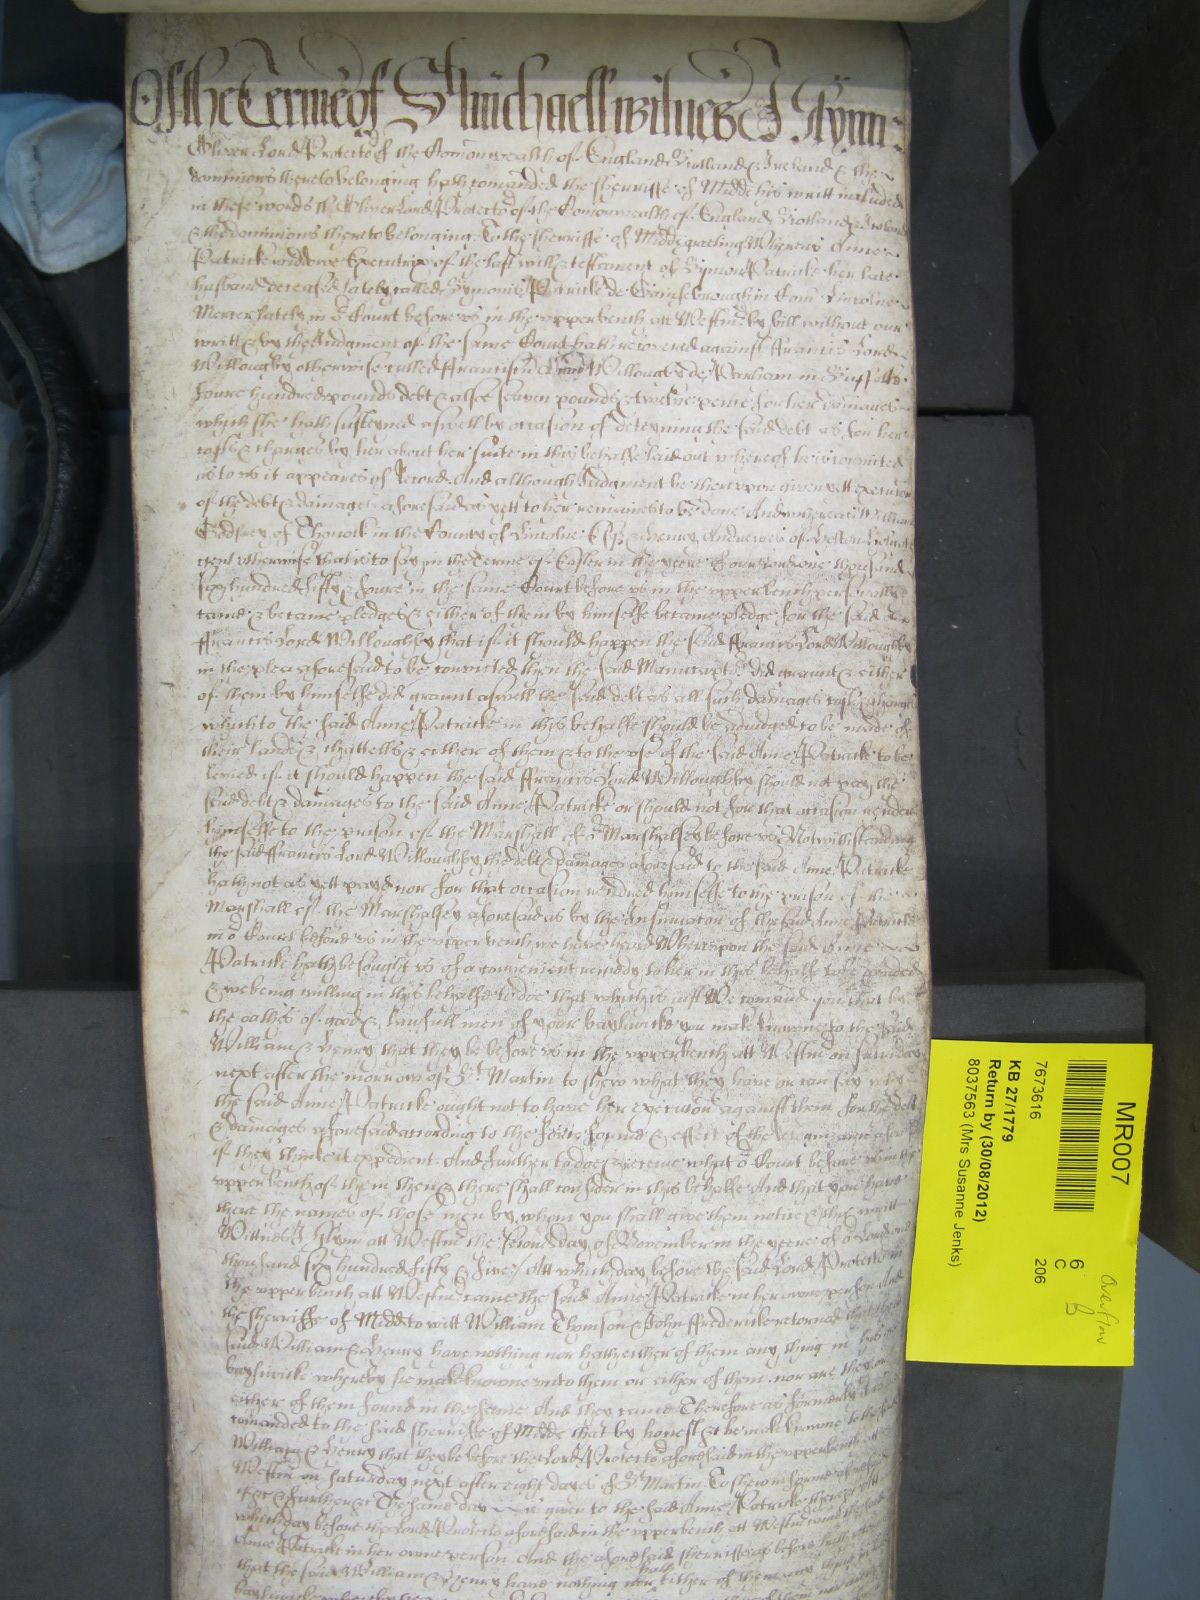 Of the Terme of St Michaell witnes J Glynn
Oliver Lord Protector of the Comonwealth of England Scotland & Ireland & the
dominions thereto belonging hath comanded the sherriffe of Midd his writt included
in these words Oliver Lord Protector of the Comonwealth of England Scotland & Ireland
& the dominions thereto belonging To the sherriffe of Midd greeting Whereas Anne
Patricke widdowe Executrix of the last will & testament of Symon Patricke her late
husband deceased lately called Symonis Patricke de Gainseborough in Com Lincolne
Mercer lately in o Court before us in the upper bench att Westm by bill without our
writt & by the Judgment of the same Court hath recovered against ffrancis Lord
Willoughby otherwise called ffranciscu Willoughby de Parham in Suffolke
foure hundred pounds debt & alsoe seaven pounds & twelve pence for her damages
which she hath susteyned aswell by occasion of deteyning the said debt as for her
costs & charges by her about her suite in this behalfe laid out whereof he is convicted
as to us it appeares of Record And although Judgment be thereupon given yett execution
of the debt & damages aforesaid as yett to her remaines to be done And whereas William
Godfrey of Thonock in the County of Lincolne Esq & Henry Andrewes of
gent otherwise that is to say in the Terme of Easter in the yeere of our Lord one thousand
six hundred fifty & foure in the same Court before us in the upper bench personally
came & became pledges & either of them by himselfe became pledge for the said
ffrancis Lord Willoughby that if it should happen the said ffrancis Lord Willoughby
in the plea aforesaid to be convicted then the said Manucapt did graunt & either
of them by himselfe did graunt aswell the said debt as all such damages costs & charges
which to the said Anne Patricke in this behalfe should be adiudged to be made of
their lands & chattells & either of them & to the use of the said Anne Patricke to be
levied if it should happen the said ffrancis Lord Willoughby should not pay the
said debt & damages to the said Anne Patricke or should not for that occasion render
himselfe to the prison of the Marshall of o Marshalsey before us Notwithstanding
the said ffrancis Lord Willoughby the debt & damages aforesaid to the said Anne Patricke
hath not as yett payd nor for that occasion rendred himselfe to the prison of the
Marshall of the Marshalsey aforesaid as by the Informacon of the said Anne Patricke
in o Court before us in the upper bench we have heard Whereupon the said Anne
Patricke hath besought us of a convenient remedy to her in this behalfe to be graunted
& we being willing in this behalfe to doe that which is iust We comand you that by
the oathes of good & lawfull men of your bayliwicke you make knowne to the said
William & Henry that they be before us in the upper bench att Westm on
next after the morrow of St Martin to shew what they have or can say why
the said Anne Patricke ought not to have her execucon against them for the debt
& damages aforesaid according to the force forme & effect of the recognizance aforesaid
if they thinke it expedient And further to doe & receive what o Court before us in the
upper bench of them then & there shall consider in this behalfe And that you have
there the names of those men by whom you shall give them notice & this writt
Witnes J Glynn att Westm the second day of November in the yeere of o Lord one
thousand six hundred fifty & five Att which day before the said Lord Protector in
the upper bench att Westm came the said Anne Patricke in her owne person And
the sherriffe of Midd to witt William Thomson & John ffredericke retorned that the
said William & Henry have nothing nor hath either of them any thing in his
bayliwicke whereby he make knowne unto them or either of them nor are they or
either of them found in the same And they came Therefore as formerly it is
comanded to the said sherriffe of Midd that by honest &c he make knowne to the said
William & Henry that they be before the Lord Protector aforesaid in the upper bench att
Westm on saturday next after eight dayes of St Martin To shew in forme aforesaid
if &c & further &c The same day is given to the said Anne Patricke there &c att
which day before the Lord Protector aforesaid in the upper bench att Westm came the said
Anne Patricke in her owne person And the aforesaid sherriffe as before
that the said William & Henry have nothing nor hath either of them any thing in his
MR007
7673616
6
C
206
overflow
KB 27/1779
Return by (30/08/2012)
8037563 (Mrs Susanne Jenks)